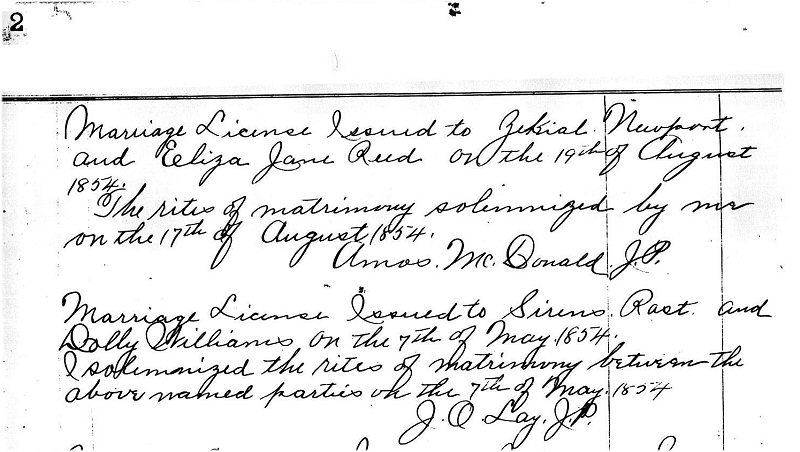 2
Marriage License Issued to Zekial. Newport.
and Eeliza Jane Reed on the 19th of August
1854.
The rites of matrimony solemnized by me
on the 17th of August, 1854.
Amos. Mc. Donald. J.P.
Marriage License Issued to Sirens. Rast. and
Dolly Williams on the 7th of May. 1854.
I solemnized the rites of matrimony between the
above named parties on the 7th of May. 1854
J. O. Lay. J.P.